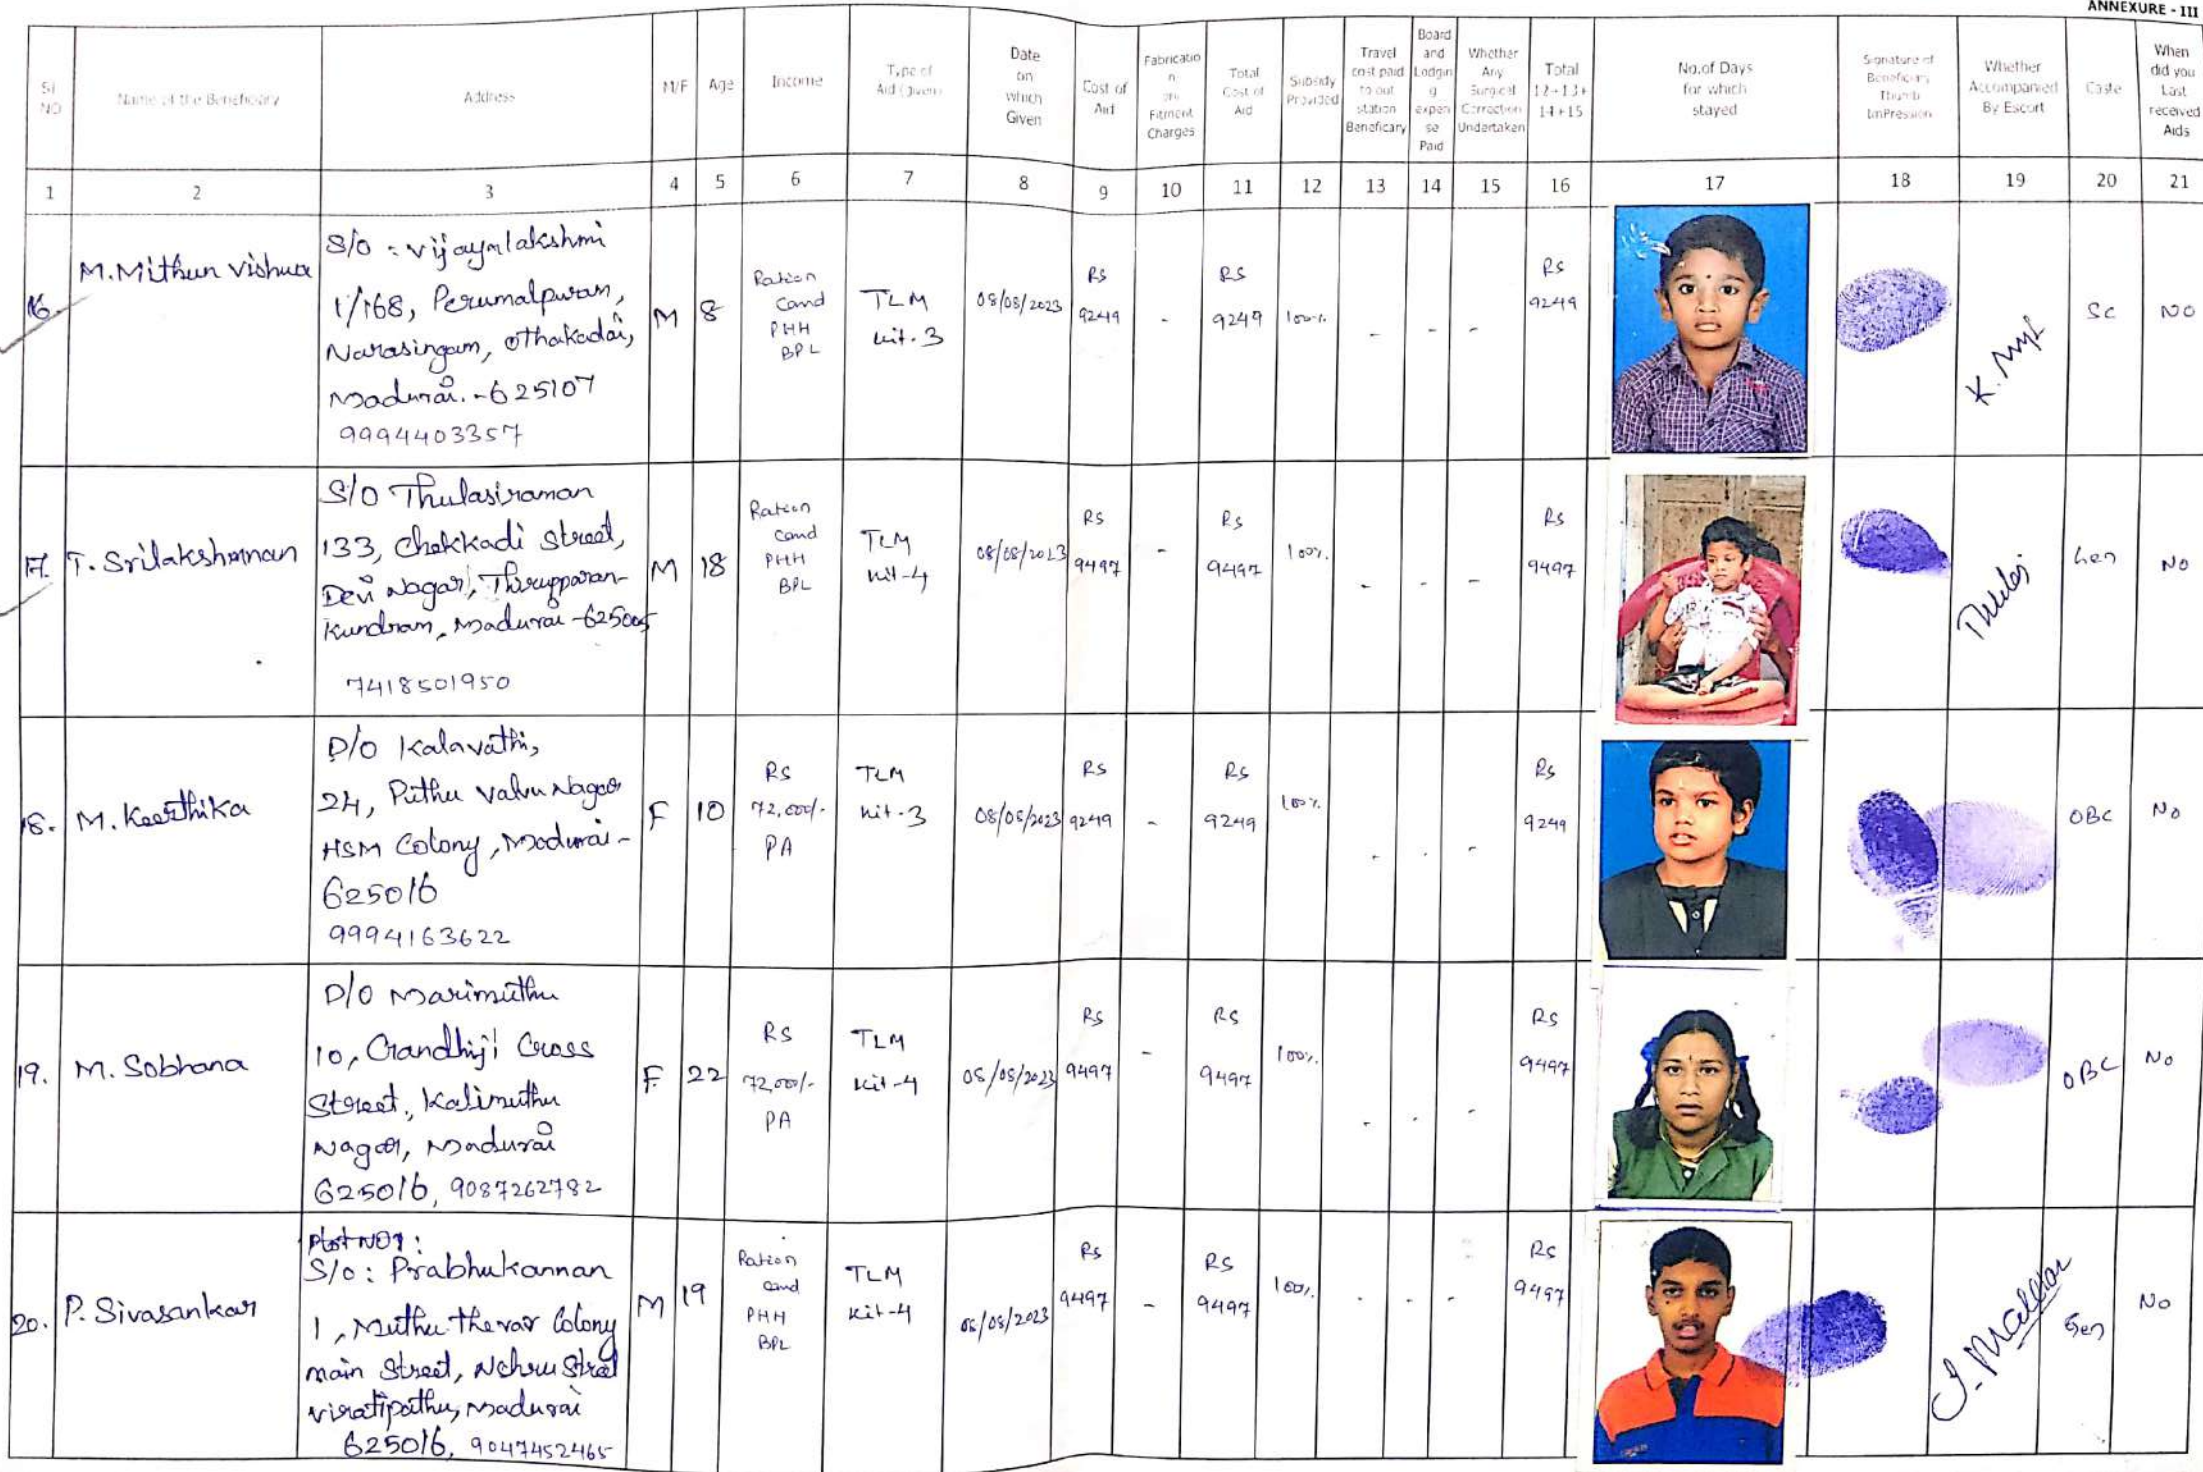 ANNEXURE - III
Sl NO
Name of the Beneficiary
Address
M/F
Age
Income
Type of Aid (given)
Date on Which Given
Cost of Aid
Fabrication Fitment Charges
Total Cost of Aid
Subsidy Provided
Travel cost paid to out station Beneficary
Board and Lodging expense Paid
Whether Any Surgical Corrction Undertaken
Total 12+13+ 14+15
No.of Days for which stayed
Signature of Beneficiary Thumb ImPression
Whether Accompanied By Escort
Caste
When did you Last received Aids
1 2 3 4 5 6 7 8 9 10 11 12 13 14 15 16 17 18 19 20 21
16.
M.Mithun Vishwa
S/o : Vijayalakshmi
1/168, Perumalpuram,
Narasingam, Othakadai,
Madurai. -625107
9994403357
M
8
Ration
Card
PHH
BPL
TLM
kit.3
08/08/2023
Rs
9249
-
Rs
9249
100%
-
-
-
Rs
9249
SC
NO
17.
T. Srilakshmnan
S/O Thulasiraman
133, Chokkadi Street,
Devi Nagar, Thirupparan-
Kundram, Madurai -625005
7418501950
M
18
Ration
Card
PHH
BPL
TLM
kit-4
08/08/2023
Rs
9497
-
Rs
9497
100%
-
-
-
Rs
9497
Gen
NO
18.
M. Keerthika
D/o Kalavathi,
24, Puthu Valvu Nagar
HSM Colony, Madurai -
625016
9994163622
F
10
Rs
72,000/-
PA
TLM
kit-3
08/08/2023
Rs
9249
-
Rs
9249
100%
-
-
-
Rs
9249
OBC
No
19.
M. Sobhana
D/O Marimuthu
10, Gandhiji Cross
Street, Kalimuthu
Nagar, Madurai
625016, 9087262782
F
22
Rs
72,000/-
PA
TLM
kit-4
08/08/2023
Rs
9497
-
Rs
9497
100%
-
-
-
Rs
9497
OBC
No
20.
P. Sivasankar
S/o : Prabhukannan
1, Muthu thevar Colony
main Street, Nehru Street
Viratipathu, Madurai
625016, 9047452465
M
19
Ration
Card
PHH
BPL
TLM
Kit-4
08/08/2023
Rs
9497
-
Rs
9497
100%
-
-
-
Rs
9497
Gen
No